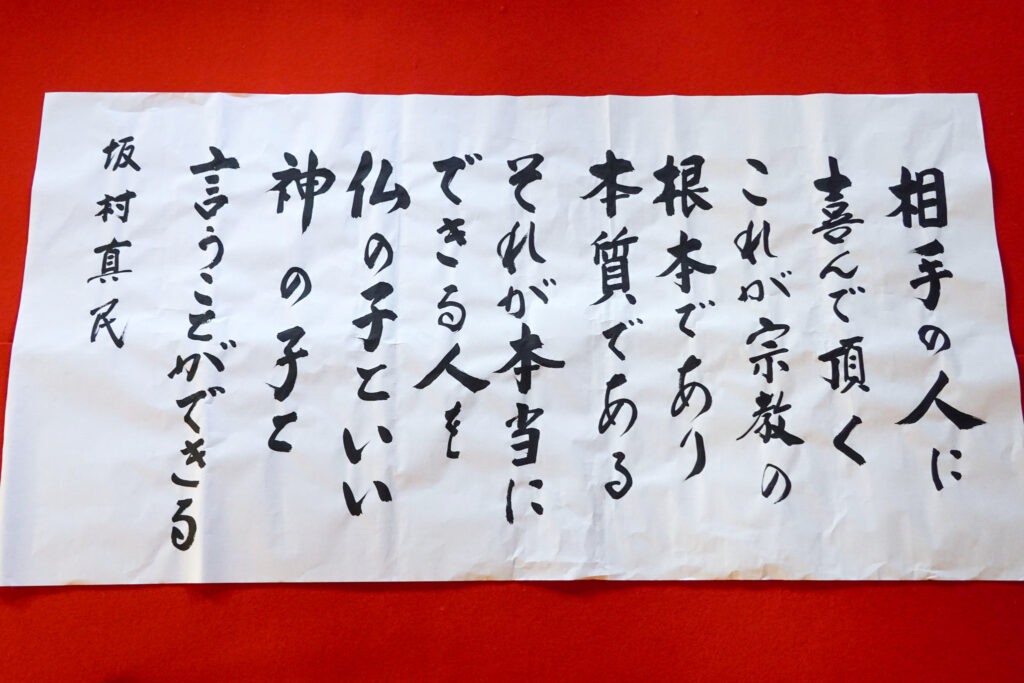 相手の人に
喜んで頂く
これが宗教の
根本であり
本質である
それが本当に
できる人を
仏の子といい
神の子と
言うことができる
坂村真民